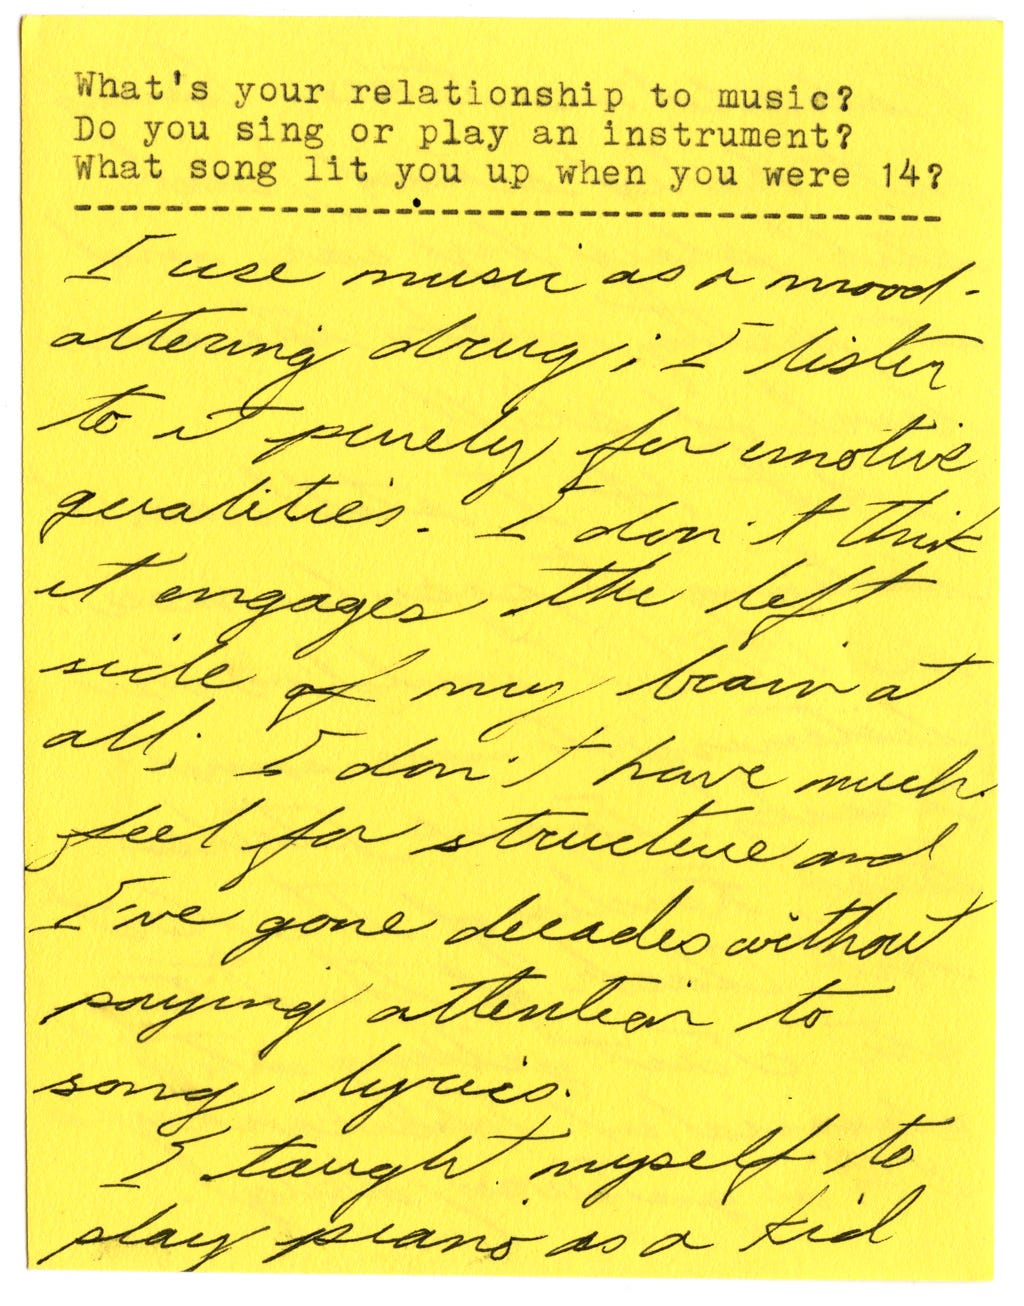 What's your relationship to music?
Do you sing or play an instrument?
What song lit you up when you were 14?
I use music as a mood-
altering drug; I listen
to it purely for emotive
qualities. I don't think
it engages the left
side of my brain at
all; I don't have much
feel for structure and
I've gone decades without
paying attention to
song lyrics.
I taught myself to
play piano as a kid